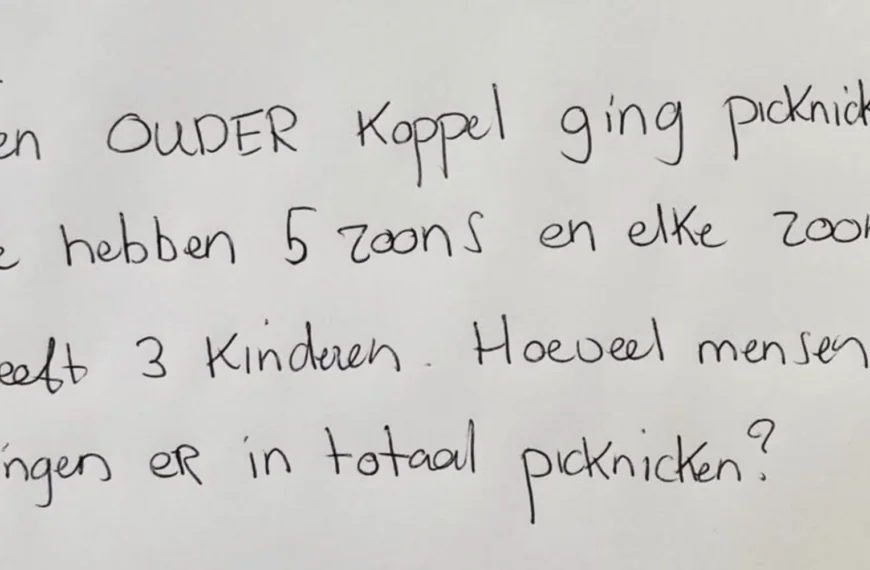 en OUDER Koppel ging picknick
e hebben 5 zoons en elke zoon
eeft 3 Kinderen. Hoeveel mensen
ingen er in totaal picknicken?